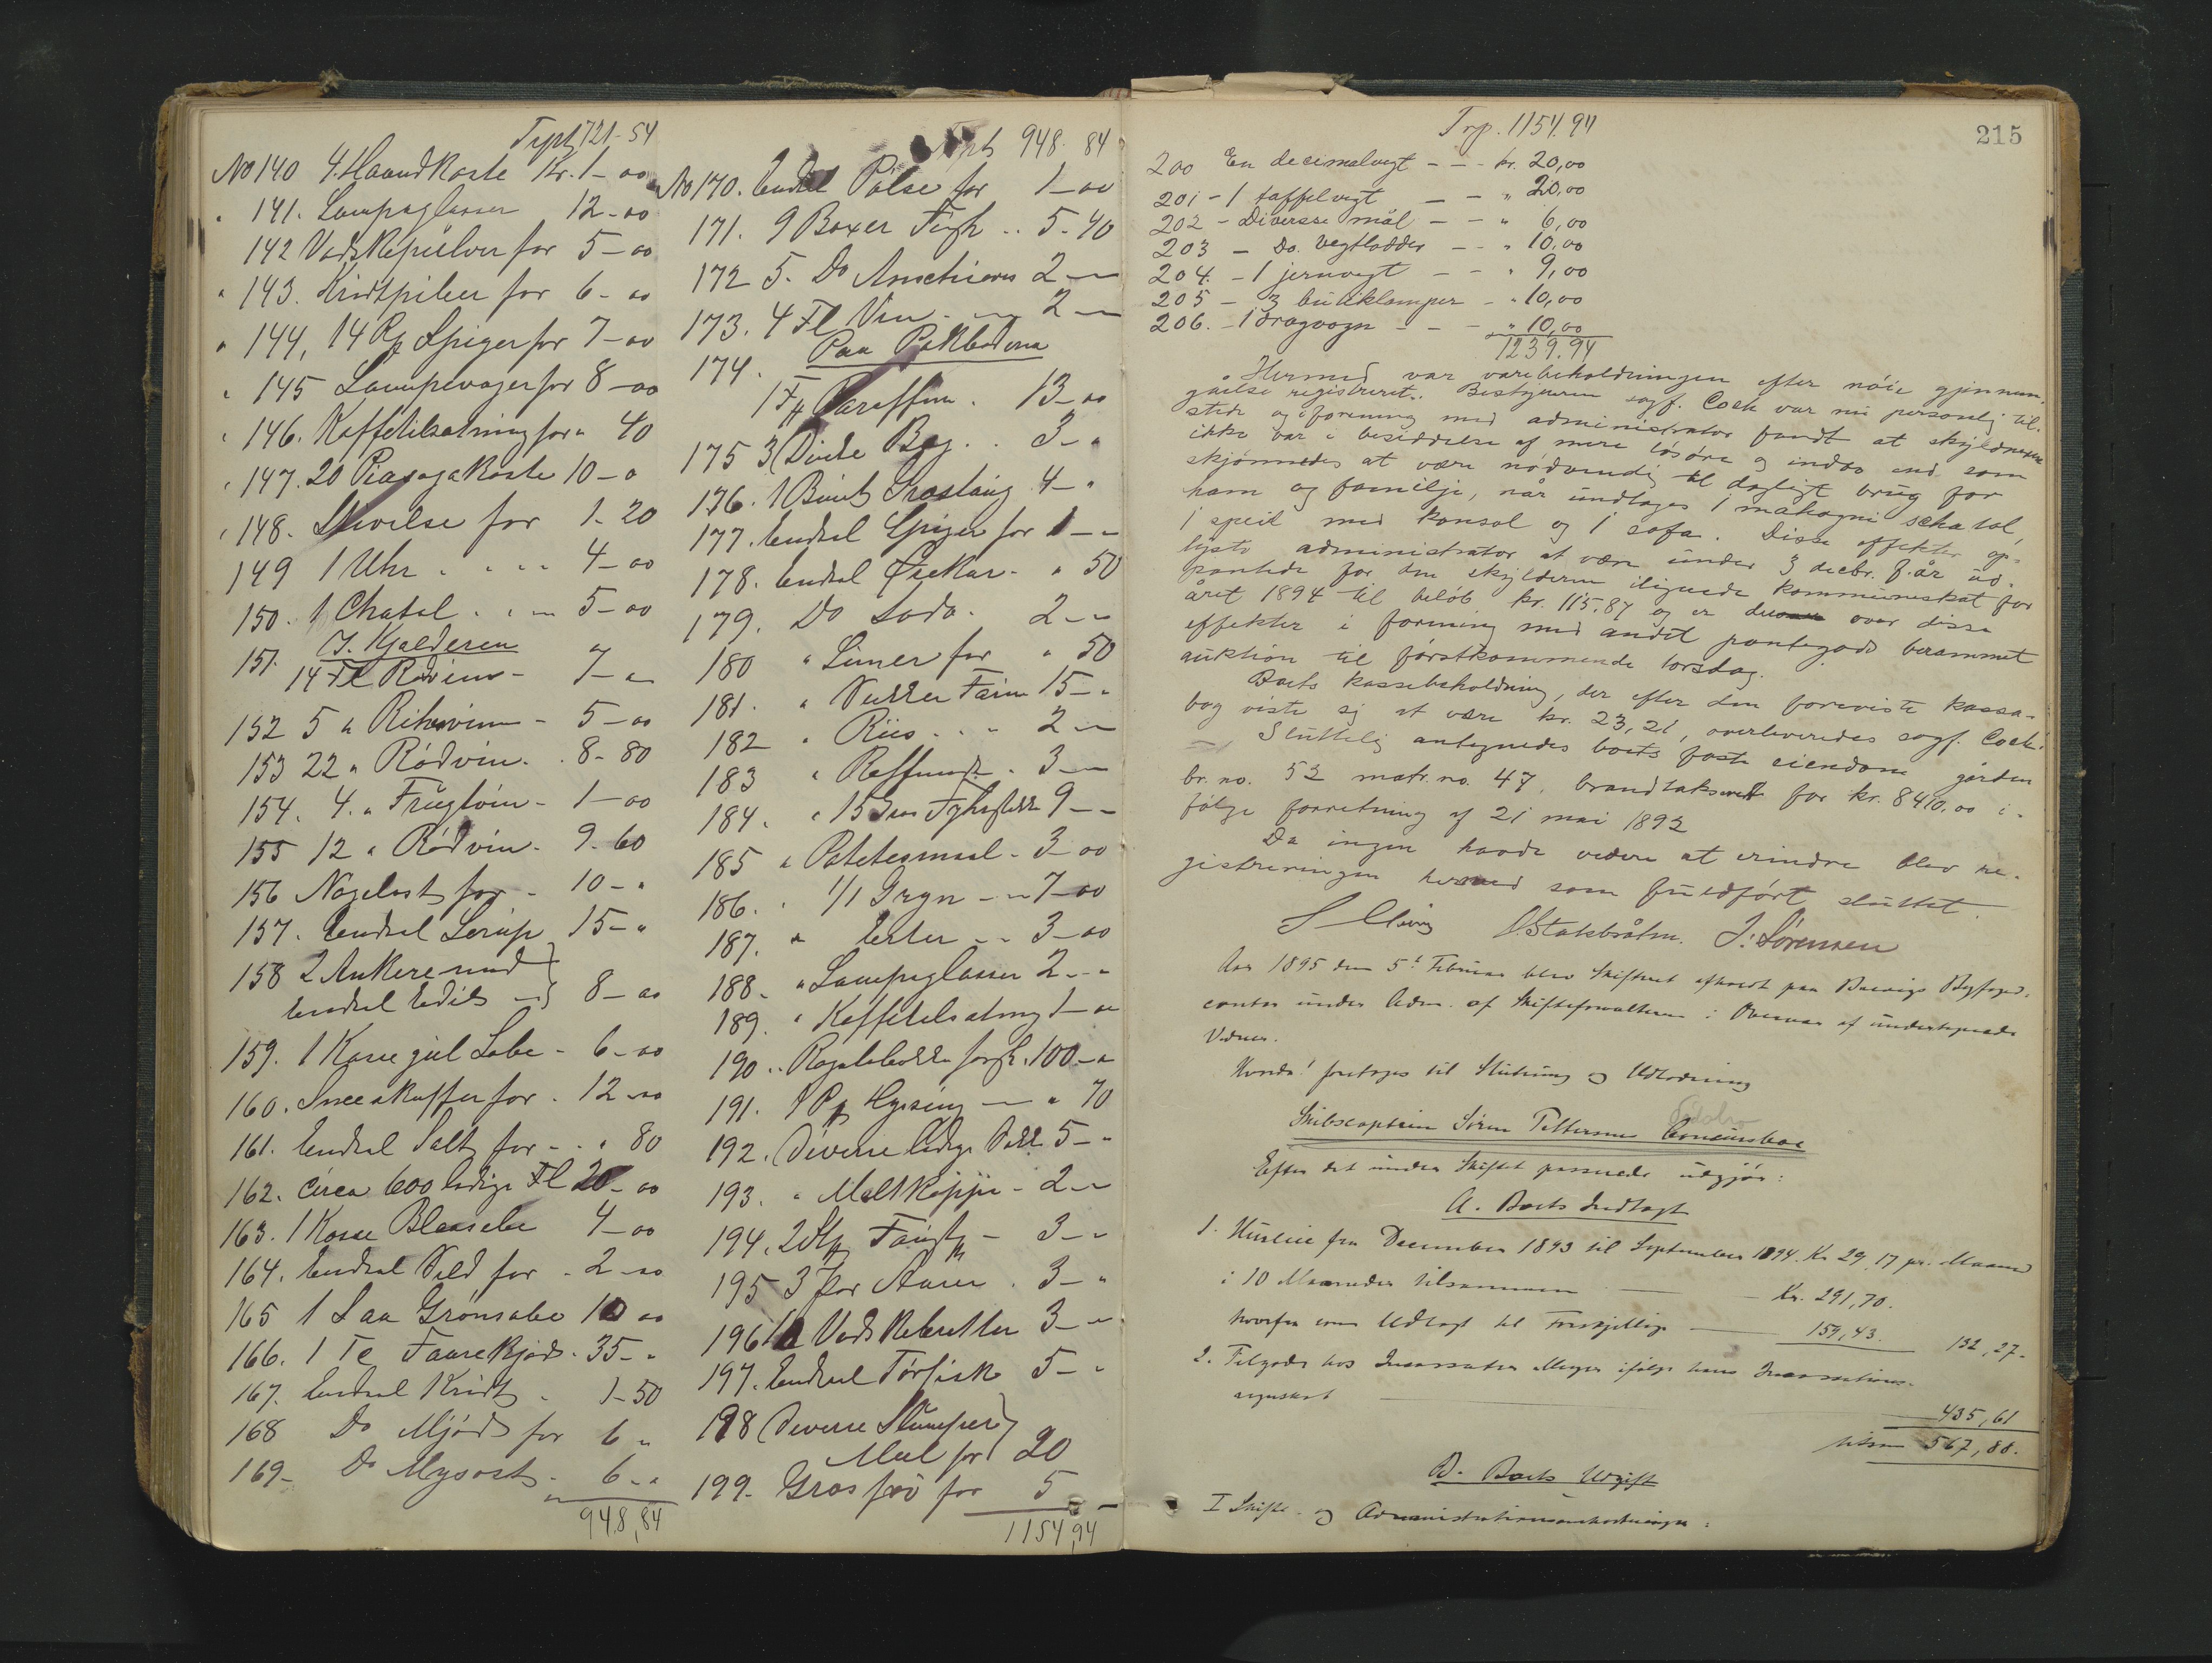 Trpt 721-54
No 140 4 Haandkoste Kr. 1-00
" 141. Lampeglasser 12-00
142 Vadskepulver for 5-00
" 143. Kridtpiber for 6-00
" 144, 14 Spiger for 7-00
" 145 Lampevæger for 8-00
" 146. Kaffetilsætning for " 40
" 147. 20 Piasavakoste 10-0
" 148. Stivelse for 1-20
149 1 Uhr 4-00
150. 1 Chatol 5-00
I. Kjelderen
151. 14 Fl Rødvin - 7-"
152 5 " Rihnvin - 5-00
153 22 " Rødvin. 8-80
154. 4. " Frugtvin - 1-00
155 12 " Rødvin - 9-60
156 Nøgelost for - 10-"
157. Endeel Sirup 15-"
158 2 Ankere med
Endeel Edik 8-00
159. 1 Kasse gul Sæbe - 6-00
160. Sneeskuffer for - 12-00
161. Endeel Salt for - " 80
162. circa 600 ledige Fl 20-00
163. 1 Kasse Blaasæbe 4-00
164. Endeel Sild for - 2-00
165 1 Saa Grønsæbe 10 00
166. 1 Te Faarekjød - 35-"
167. Endeel Kridt - 1-50
168 Do Mjød for 6 "
169- Do Mysost - 6-"
948,84
Trpt 948. 84
No 170. Endeel Pølse for 1-00
171. 9 Boxer 5-40
172 5. Do Anschiovis 2-"
173. 4 Fl Vin 2-"
Paa Pakboderne
174. 1 Fn Paraffin. 13-00
175 3 Beg 3-"
176. 1 Bundt 4-"
177. Endeel Spiger for 1-"
178. Endeel - " 50
179. Do Soda - 2-"
180 " Limer for " 50
181. " 15-"
182 " Riis 2-"
183 " 3-"
184. " 9-"
185 " Potetesmeel - 3-00
186. " 1/1 Gryn - 7-00
187. " Erter 3-00
188. " Lampeglasser 2-"
189. " Kaffetilsætning 1-00
190. 100-"
191. 1 Hysing " 70
192. Diverse ledige 5-"
193. " - 2-"
194. 2 - 3-"
195 3 Par Aarer. 3-"
196 Vadskebretter 3-"
197. Endeel Tørfisk 5-"
198 Diverse Slumper
Meel for 20
199. Græsfrø for 5
1154,94
215
Trp. 1154.94
200 En decimalvegt - - kr. 20,00
201 - 1 taffelvegt - - " 20,00
202 - Diverse mål - - " 6,00
203 - Do. vegtlodder - - " 10,00
204. - 1 jernvegt - - " 9,00
205 - 3 butiklamper - " 10,00
206. - 1 dragvogn - - - " 10,00
1239.94
Hermed var varebeholdningen efter nöie gjennem-
gåelse registreret. Bestyreren sagf. Cock var nu personlig til-
stede og i forening med administrator fandt at skyldneren
ikke var i besiddelse af mere lösöre og indbo end som
skjönnedes at være nödvendig til dagligt brug for
ham og familje, når undtages 1 mahogni schatol,
1 speil med konsol og 1 sofa. Disse effekter op-
lyste administrator at være under 3 decbr. f. år ud-
pantede for den skylderen ilignede kommuneskat for
året 1894 til belöb kr. 115,87 og er over disse
effekter i forening med andet pantegods berammet
auktion til förstkommende torsdag.
Boets kassebeholdning, der efter den foreviste kassa-
bog viste sig at være kr. 23,21, overleveredes sagf. Cock.
Sluttelig antegnedes boets faste eiendom gården
br. no. 52 matr. no. 47, brandtakseret for kr. 8410.00 i-
fölge forretning af 21 mai 1892
Da ingen havde videre at erindre blev re-
gistreringen hermed som fuldfört sluttet.
J. Sørensen
Aar 1895 den 5te Februar blev Skifteret afholdt paa Brevigs Byfoged-
contor under Adm. af Skifteforvalteren i Overvær af undertegnede
Vidner.
Hvorda! foretoges til Slutning og Udlodning
Skibscaptein Søren Pettersens Concursboe
Efter det under Skiftet passerede udgjør:
A. Boets Indtægt
1. Husleie fra December 1893 til September 1894. Kr 29,17 pr. Maaned
i 10 Maaneder tilsammen - Kr. 291,70.
hvorfra som Udlagt til Forskjellige - 159,43. 132,27.
2. Tilgode hos Incassator Meyer ifølge hans Incassations-
regnskab 435,61
tilsm 567,88.
B. Boets Udgift
I Skifte- og Administrationsomkostninger: